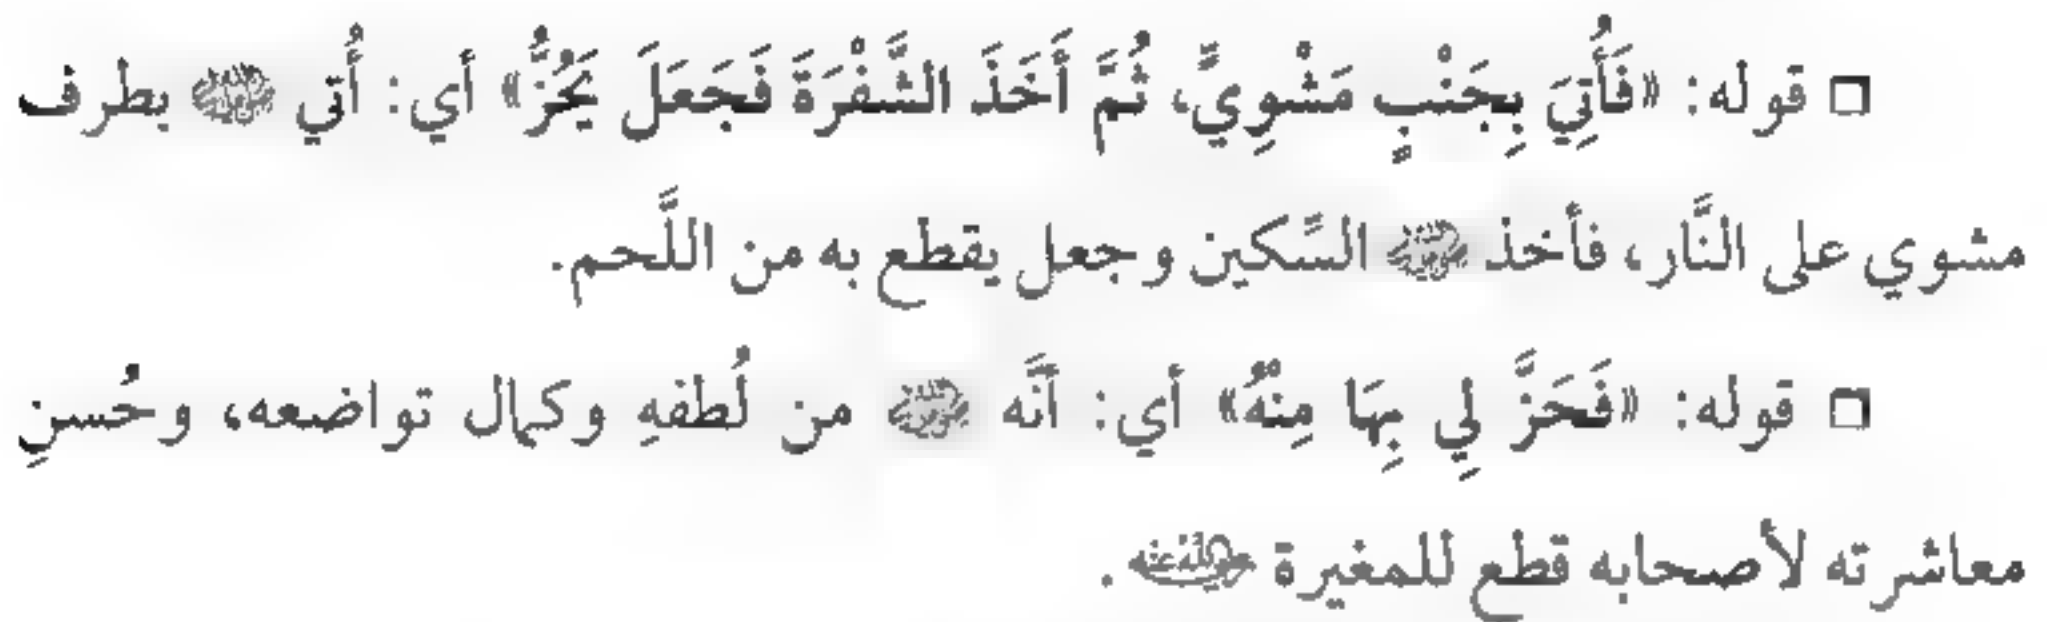 □ قوله: «فَأُتِيَ بِجَنْبٍ مَشْوِيٍّ، ثُمَّ أَخَذَ الشَّفْرَةَ فَجَعَلَ يَحُزُّ» أي: أُتي ﷺ بطرف
مشوي على النَّار، فأخذ ﷺ السِّكين وجعل يقطع به من اللَّحم.
□ قوله: «فَحَزَّ لِي بِهَا مِنْهُ» أي: أنَّه ﷺ من لُطفهِ وكمال تواضعه، وحُسنِ
معاشرته لأصحابه قطع للمغيرة رضي الله عنه.